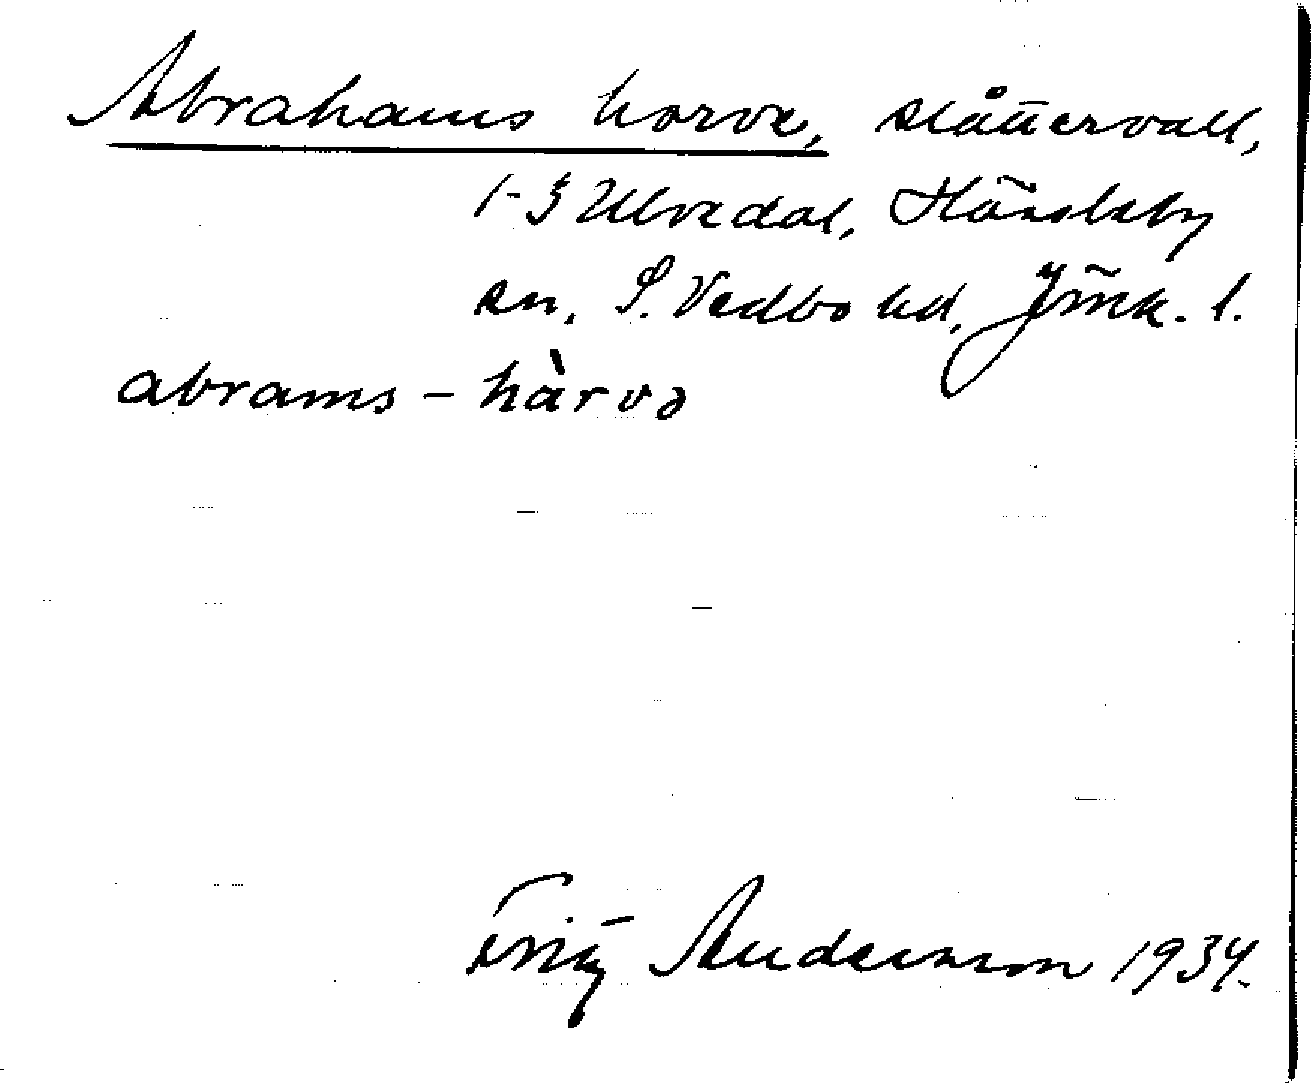 Abrahams horve, slåttervall,
1-3 Ulvedal, Hässleby
sn. S. Vedbo hd, Jönk. l.
abrams - hàrvə
Fritz Anderson 1934.